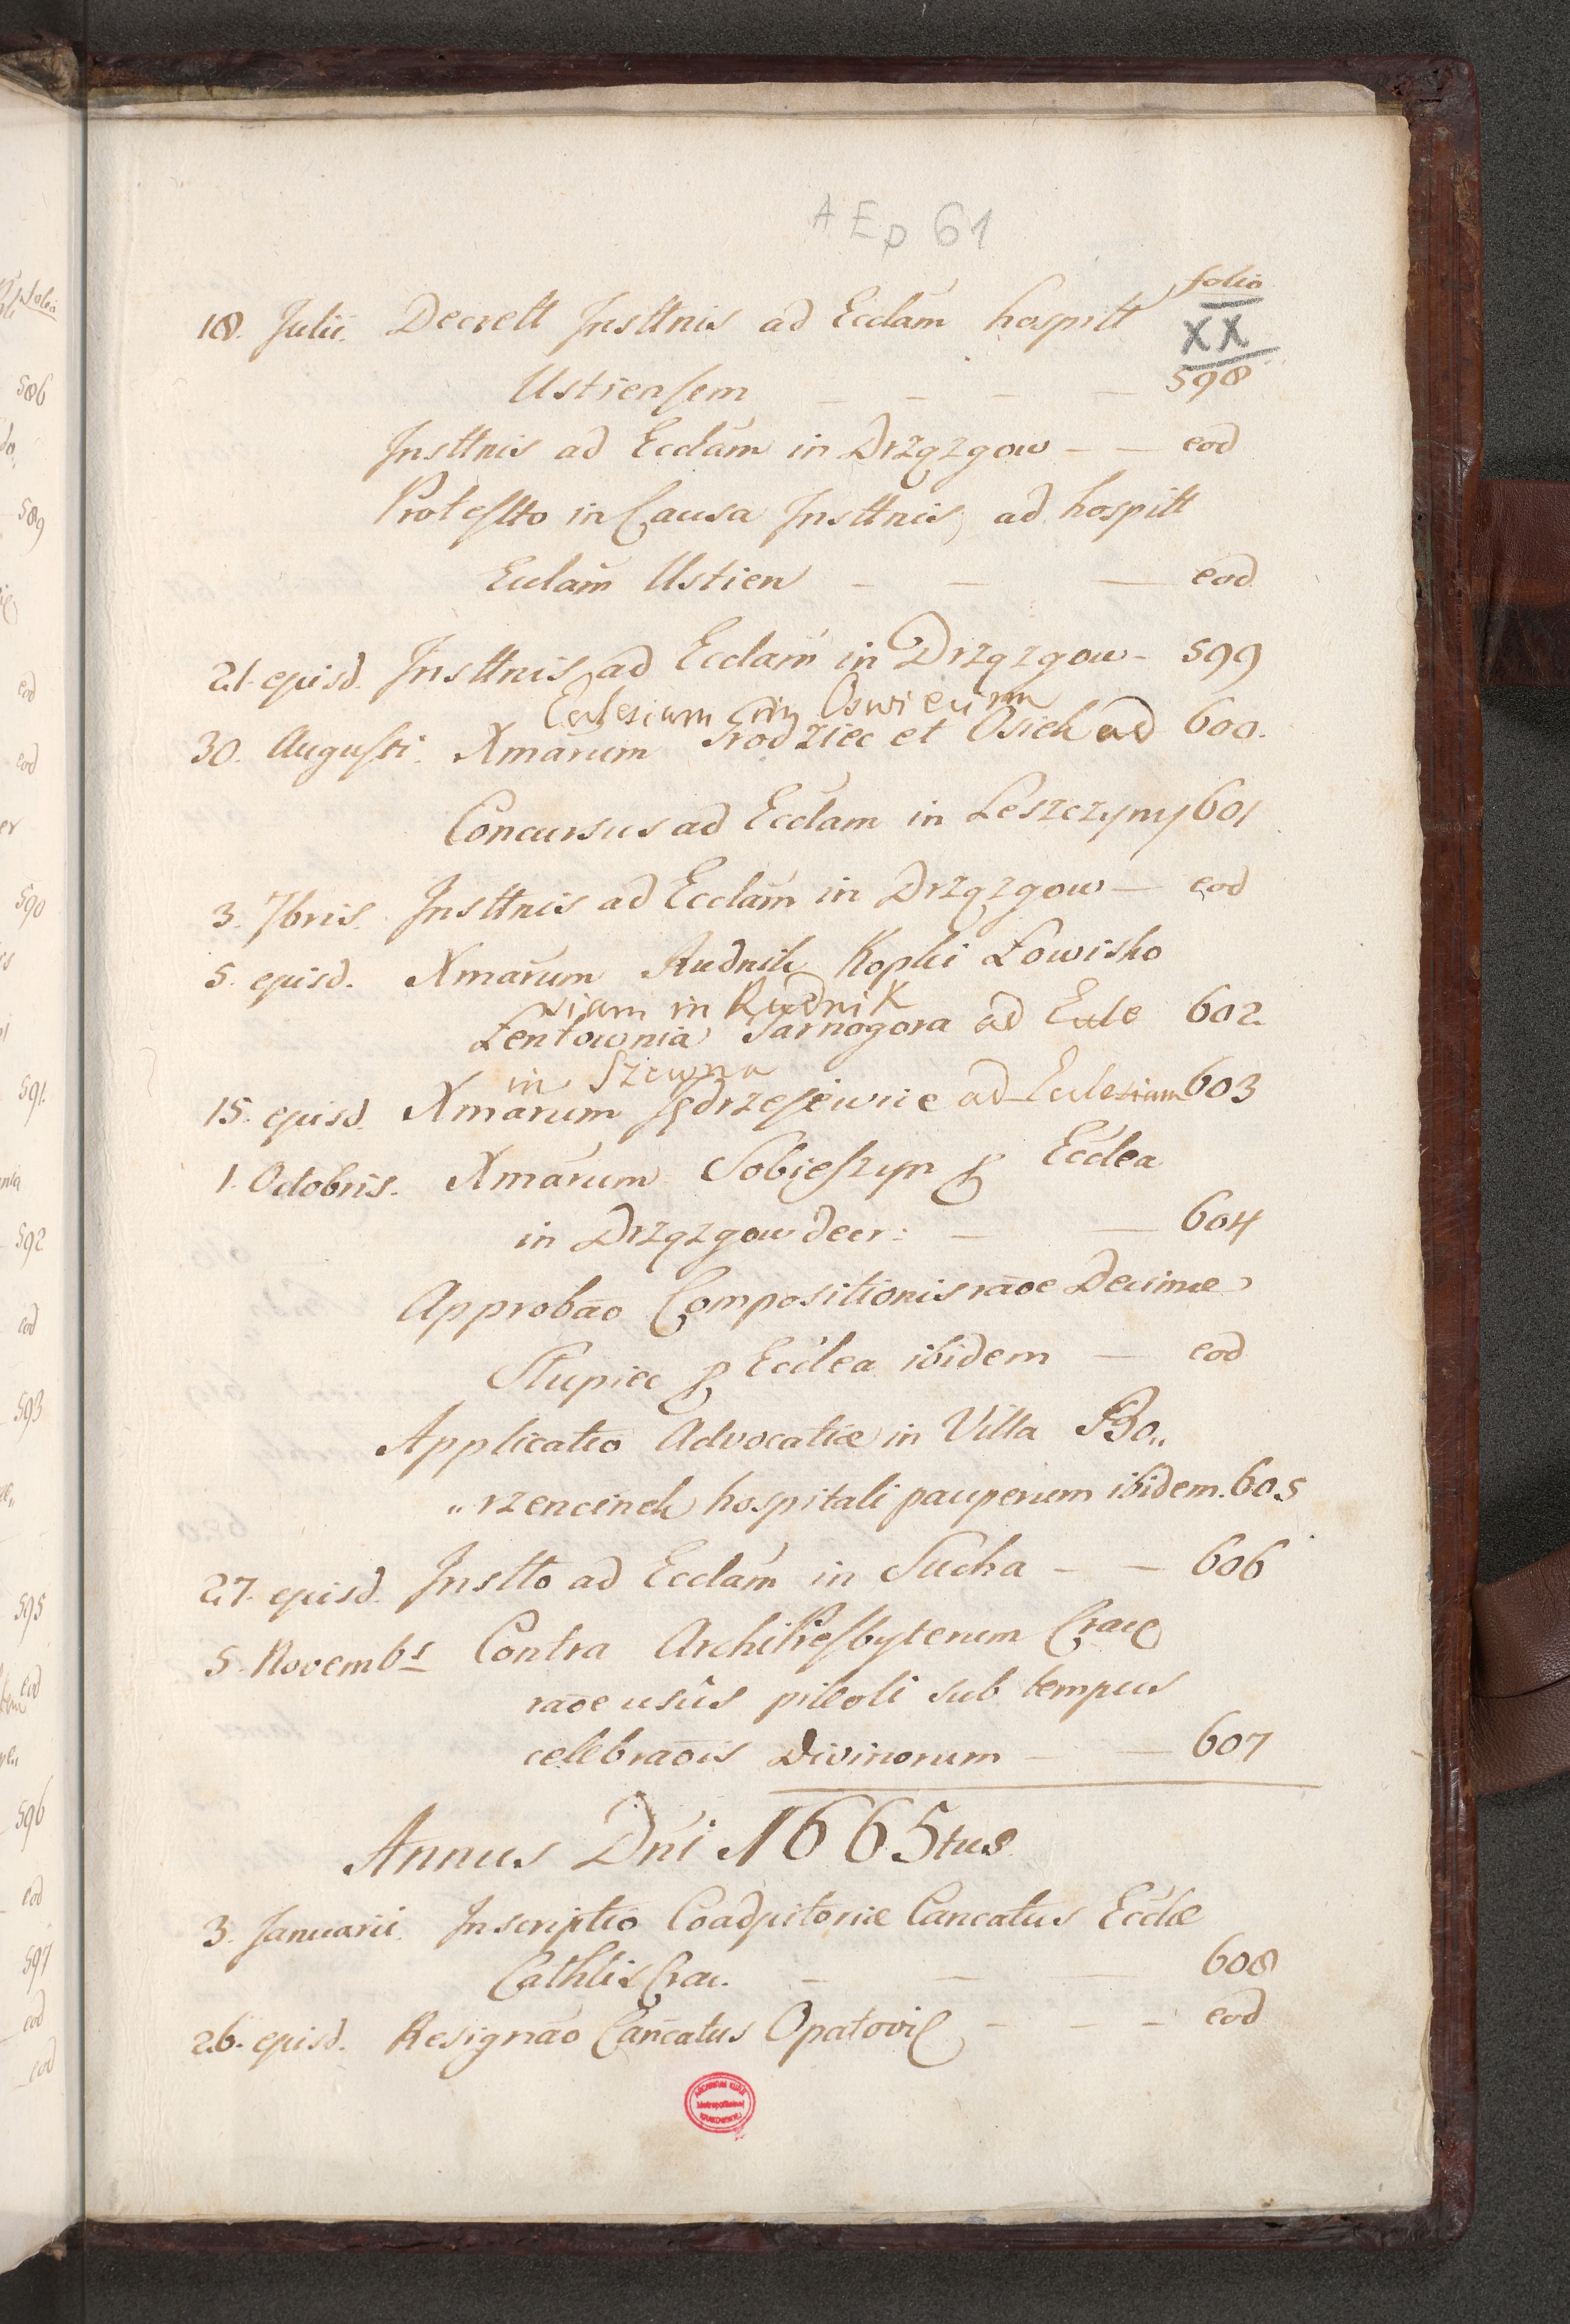 AEp 61
folio
XX
18. Julii. Decrett Insttnis ad Ecclam hospitt
Ustiensem — — — — 598
Insttnis ad Ecclam in Drzązgow — — eod
Protestto in Causa Insttnis, ad hospitt
Ecclam Ustien — — — eod
21. ejusd. Insttnis ad Ecclam in Drzązgow — 599
Eclesiam in Oswiecim
30. Augusti. Xmarum Grodziec et Osiek ad 600.
Concursus ad Ecclam in Leszczyny 601
3. 7bris. Insttnis ad Ecclam in Drzązgow — eod
5. ejusd. Xmarum Rudnik Kopki Łowisko
siam in Rudnik
Łentownia Tarnogora ad Ecle 602.
in Szewna
15. ejusd. Xmarum Jędrzejewice ad Eclesiam 603
1. Octobris. Xmarum Sobieszyn p Ecclea
in Drzązgow decr: — — 604
Approbao Compositionis raoe Decimæ
Słupiec p Ecclea ibidem — eod
Applicatio Advocatiæ in Villa Bo„
„rzencinek hospitali pauperum ibidem. 605
27. ejusd. Instto ad Ecclam in Sucha — — 606
5. Novembs Contra ArchiPresbyterum Crac
raoe usûs pileoli sub tempus
celebraois Divinorum — — 607
Annus Dni 1665tus
3. Januarii. Inscriptio Coadjutoriæ Cancatus Ecclæ
Cathlis Crac. — — — 608
26. ejusd. Resignao Cancatus Opatovic — — — eod